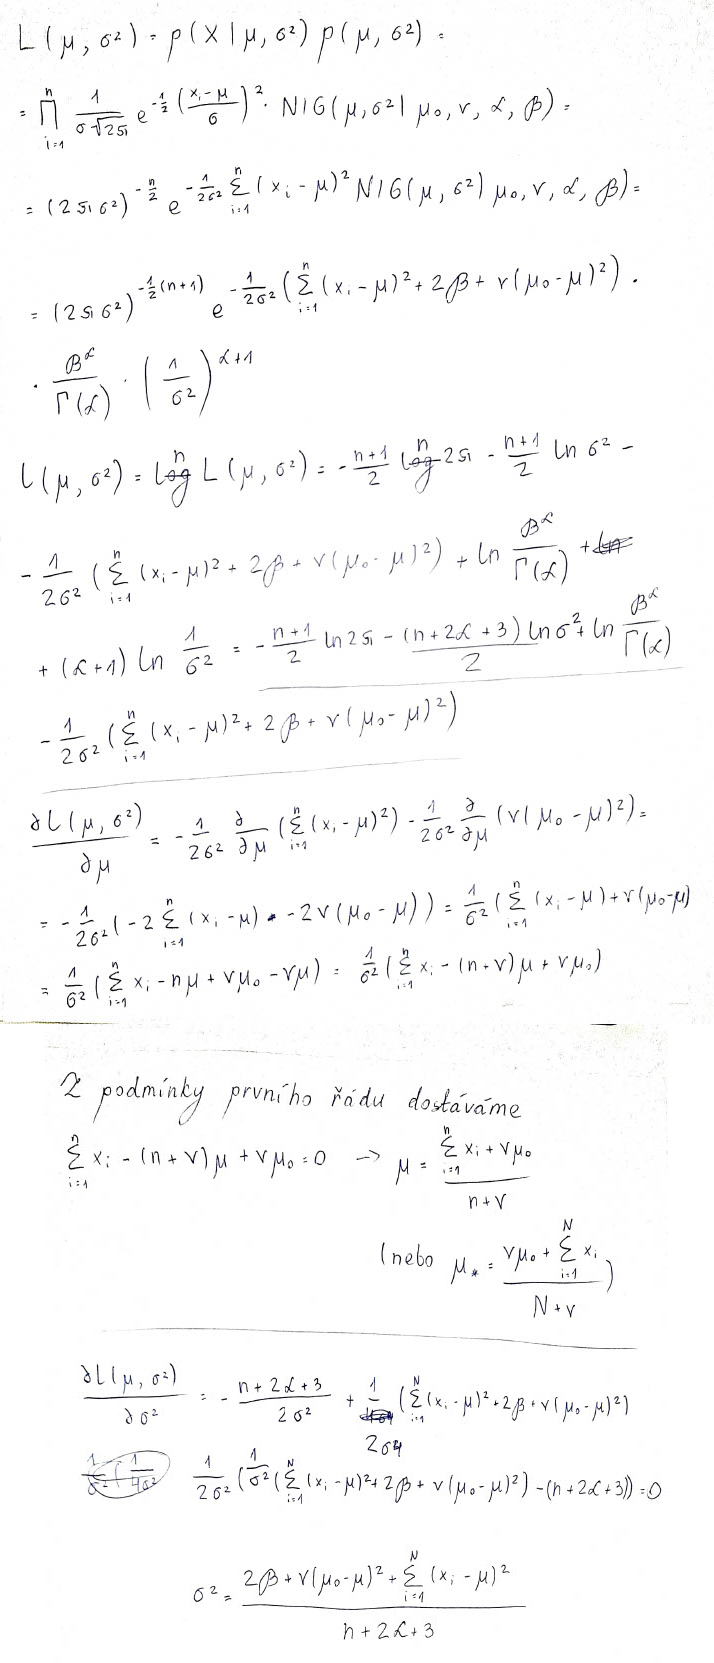 L(μ, σ²) = p(X|μ, σ²) p(μ, σ²) =
= ∏_{i=1}^{n} 1/(σ√2π) e^{-1/2 ((x_i-μ)/σ)²} · NIG(μ, σ² | μ₀, ν, α, β) =
= (2πσ²)^{-n/2} e^{-1/(2σ²) Σ_{i=1}^{n} (x_i - μ)²} NIG(μ, σ² | μ₀, ν, α, β) =
= (2πσ²)^{-1/2 (n+1)} e^{-1/(2σ²) (Σ_{i=1}^{n} (x_i - μ)² + 2β + ν(μ₀ - μ)²)} ·
· β^α/Γ(α) · (1/σ²)^{α+1}
l(μ, σ²) = ln L(μ, σ²) = -(n+1)/2 ln 2π - (n+1)/2 ln σ² -
- 1/(2σ²) (Σ_{i=1}^{n} (x_i - μ)² + 2β + ν(μ₀ - μ)²) + ln β^α/Γ(α) +
+ (α+1) ln 1/σ² = -(n+1)/2 ln 2π - (n+2α+3)/2 ln σ² + ln β^α/Γ(α)
- 1/(2σ²) (Σ_{i=1}^{n} (x_i - μ)² + 2β + ν(μ₀ - μ)²)
∂l(μ, σ²)/∂μ = - 1/(2σ²) ∂/∂μ (Σ_{i=1}^{n} (x_i - μ)²) - 1/(2σ²) ∂/∂μ (ν(μ₀ - μ)²) =
= - 1/(2σ²) (-2 Σ_{i=1}^{n} (x_i - μ) - 2ν(μ₀ - μ)) = 1/σ² (Σ_{i=1}^{n} (x_i - μ) + ν(μ₀-μ)
= 1/σ² (Σ_{i=1}^{n} x_i - nμ + νμ₀ - νμ) = 1/σ² (Σ_{i=1}^{n} x_i - (n+ν)μ + νμ₀)
Z podmínky prvního řádu dostáváme
Σ_{i=1}^{n} x_i - (n+ν)μ + νμ₀ = 0 → μ = (Σ_{i=1}^{n} x_i + νμ₀)/(n+ν)
(nebo μ_* = (νμ₀ + Σ_{i=1}^{N} x_i)/(N+ν))
∂l(μ, σ²)/∂σ² = - (n+2α+3)/(2σ²) + 1/(2σ⁴) (Σ_{i=1}^{N} (x_i - μ)² + 2β + ν(μ₀ - μ)²)
1/(2σ²) (1/σ² (Σ_{i=1}^{N} (x_i - μ)² + 2β + ν(μ₀ - μ)²) - (n+2α+3)) = 0
σ² = (2β + ν(μ₀-μ)² + Σ_{i=1}^{N} (x_i - μ)²)/(n+2α+3)